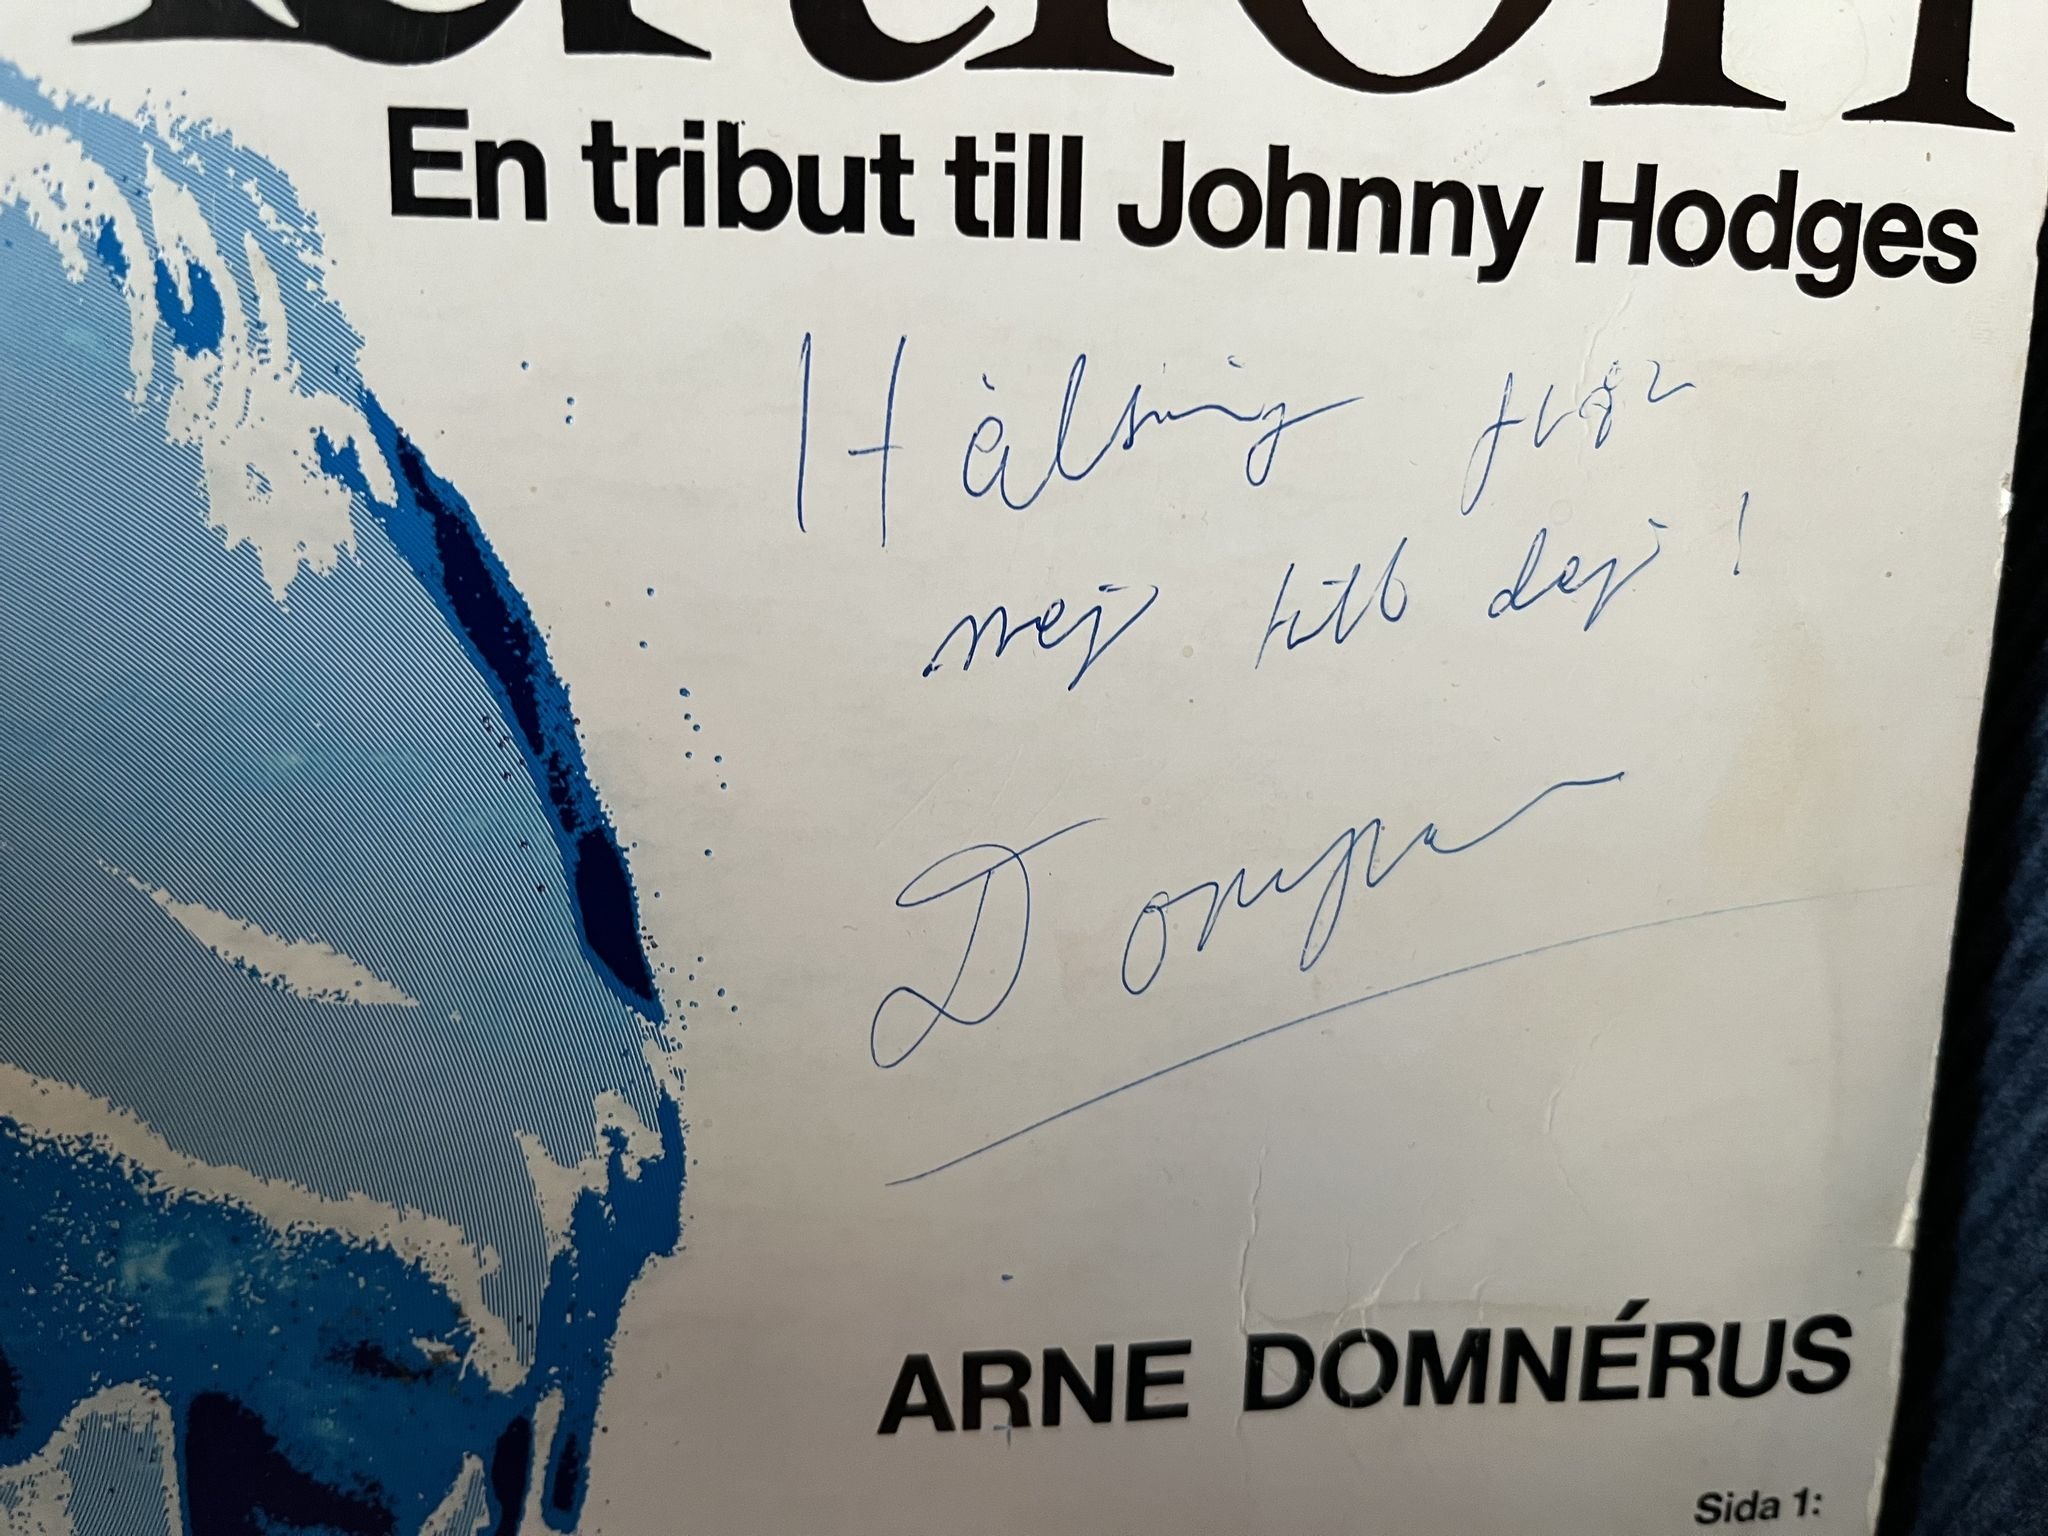 En tribut till Johnny Hodges
Hälsning från
mej till dej!
ARNE DOMNÉRUS
Sida 1: